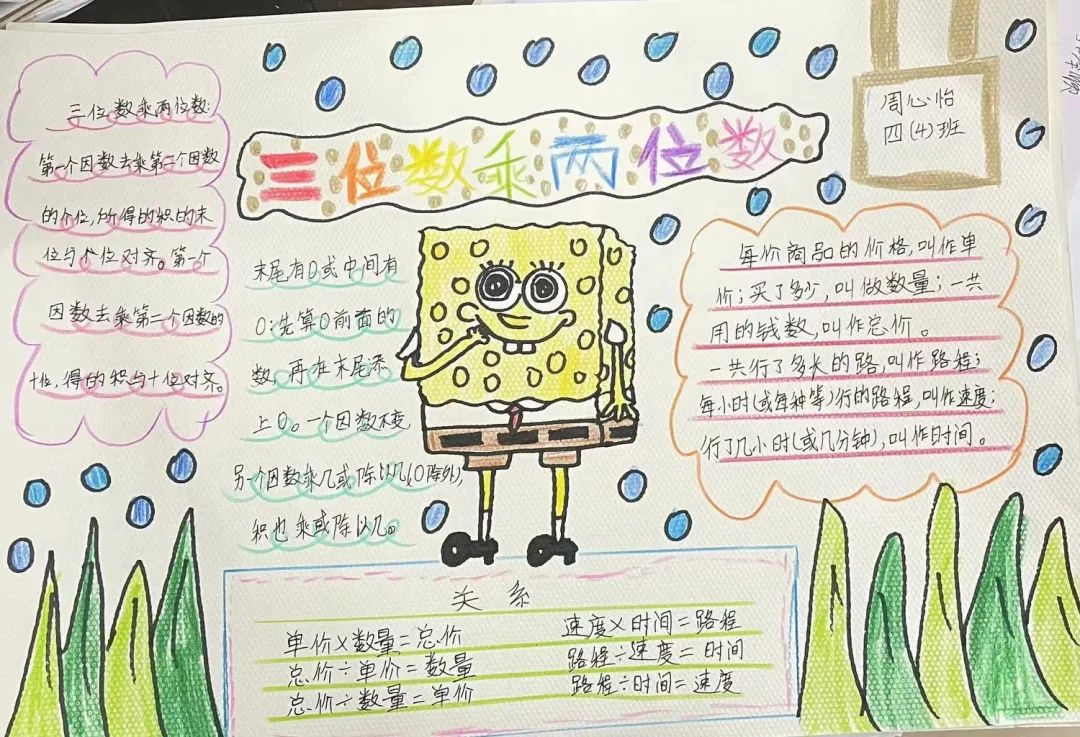 三位数乘两位数
周心怡
四(4)班
三位数乘两位数:
第一个因数去乘第二个因数
的个位,所得的积的末
位与个位对齐。第一个
因数去乘第二个因数的
十位,得的积与十位对齐。
末尾有0或中间有
0:先算0前面的
数,再在末尾添
上0。一个因数不变,
另一个因数乘几或除以几(0除外),
积也乘或除以几。
每价商品的价格,叫作单
价;买了多少,叫做数量;一共
用的钱数,叫作总价。
一共行了多长的路,叫作路程;
每小时(或每种等)行的路程,叫作速度;
行了几小时(或几分钟),叫作时间。
关系
单价×数量=总价
总价÷单价=数量
总价÷数量=单价
速度×时间=路程
路程÷速度=时间
路程÷时间=速度